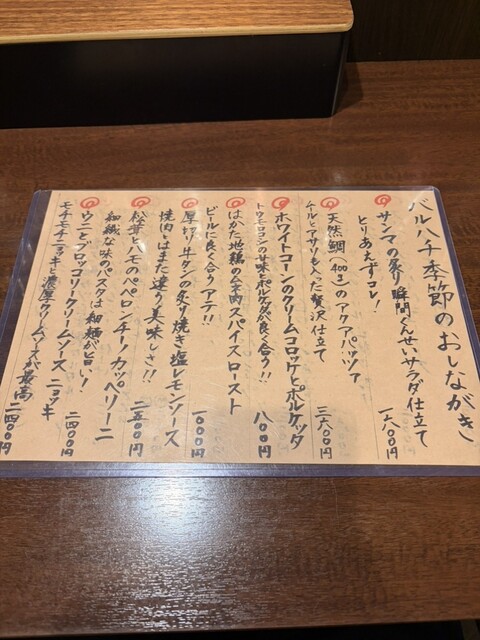 バルハチ季節のおしながき
サンマの炙り瞬間くんせいサラダ仕立て
とりあえずコレ!
一八〇〇円
天然鯛(400g)のアクアパッツァ
ムールとアサリも入った贅沢仕立て
三六〇〇円
ホワイトコーンのクリームコロッケとポルケッタ
トウモロコシの甘味とポルケッタが良く合う!!
八〇〇円
はかた地鶏のムネ肉スパイスロースト
ビールに良く合うアテ!!
一〇〇〇円
厚切り牛タンの炙り焼き塩レモンソース
焼肉とはまた違う美味しさ!!
二五〇〇円
松茸とハモのペペロンチーノカッペリーニ
な味のパスタは細麺が旨い!
二四〇〇円
ウニとブロッコリークリームソースニョッキ
モチモチニョッキと濃厚クリームソースが最高
二四〇〇円